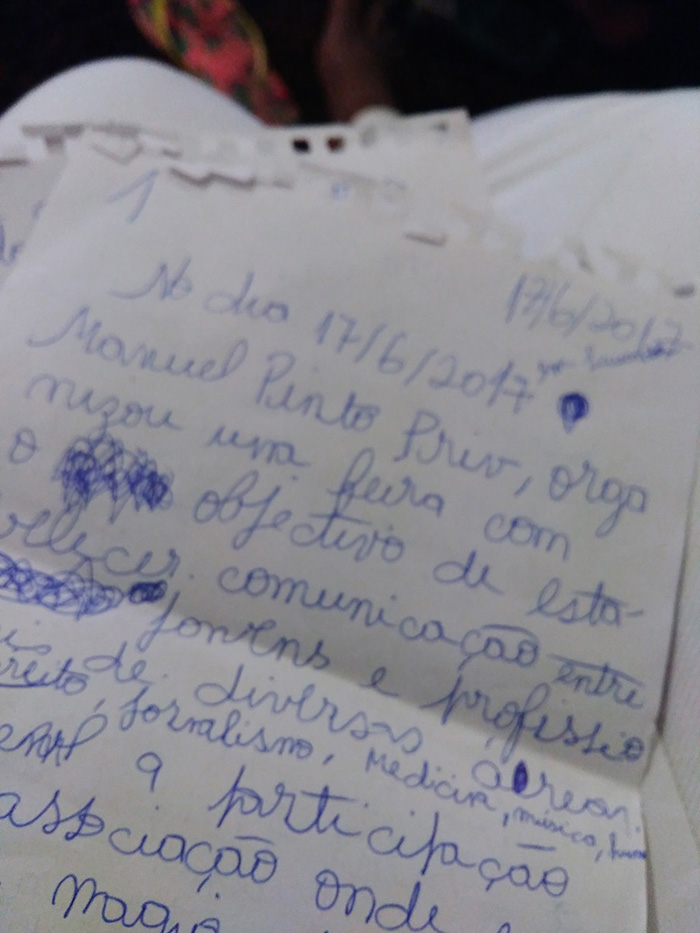 1
17/6/2017
No dia 17/6/2017
Manuel Pinto Priv, orga
nizou uma feira com
o objectivo de esta-
velecer comunicação entre
jovens e profissio
is de diversas áreas.
reito, Jornalismo, Medicina, música,
a participação
associação onde